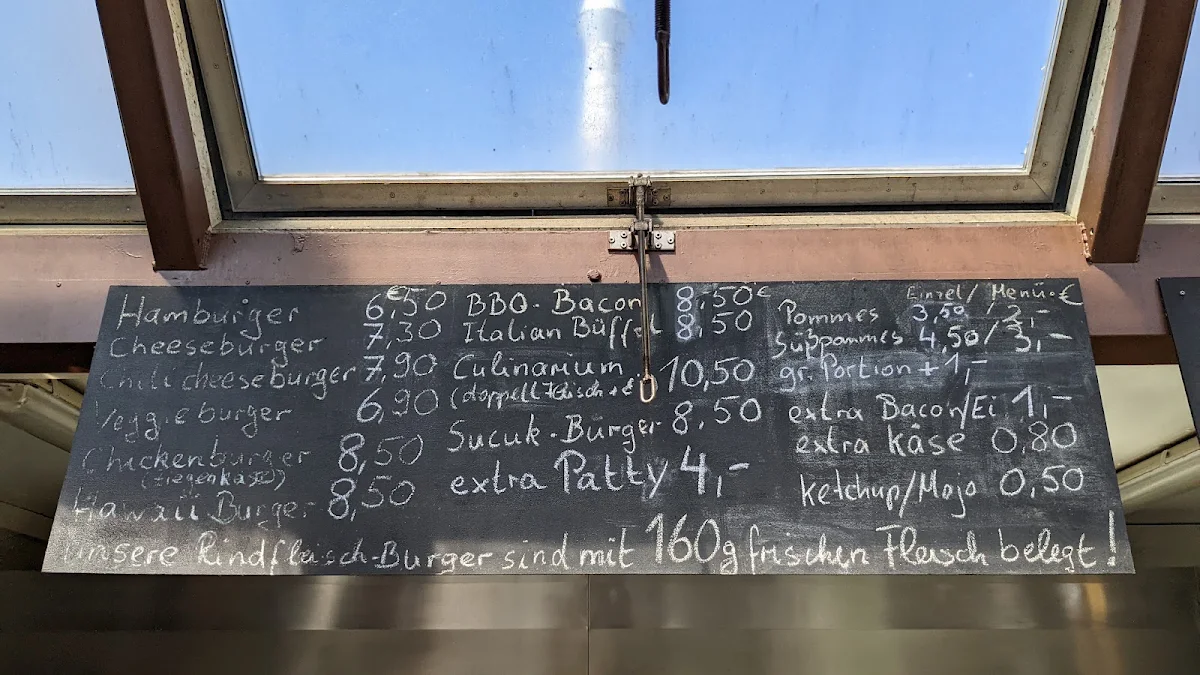 Hamburger 6,50€
Cheeseburger 7,30
Chili cheeseburger 7,90
Veggieburger 6,90
Chickenburger 8,50
(Ziegenkäse)
Hawaii Burger 8,50
BBQ-Bacon 8,50€
Italian Büffel 8,50
Culinarium 10,50
(doppelt Fleisch +
Sucuk-Bürger 8,50
extra Patty 4,-
Einzel/Menü.€
Pommes 3,50/2,-
Süßpommes 4,50/3,-
gr. Portion + 1,-
extra Bacon/Ei 1,-
extra käse 0,80
ketchup/Majo 0,50
unsere Rindfleisch-Burger sind mit 160g frischen Fleisch belegt!